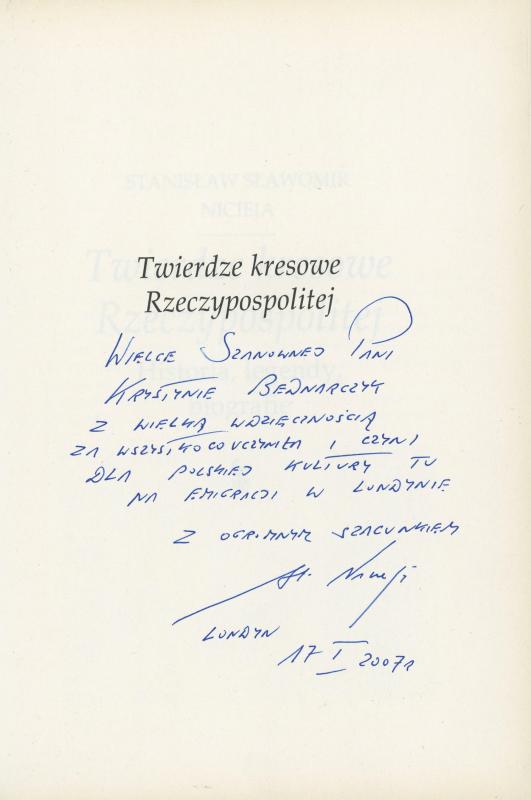 Twierdze kresowe
Rzeczypospolitej
WIELCE SZANOWNEJ PANI
KRYSTYNIE BEDNARCZYK
Z WIELKĄ WDZIĘCZNOŚCIĄ
ZA WSZYSTKO CO UCZYNIŁA I CZYNI
DLA POLSKIEJ KULTURY TU
NA EMIGRACJI W LONDYNIE
Z OGROMNYM SZACUNKIEM
St. Nicieja
LONDYN
17 I 2007 r